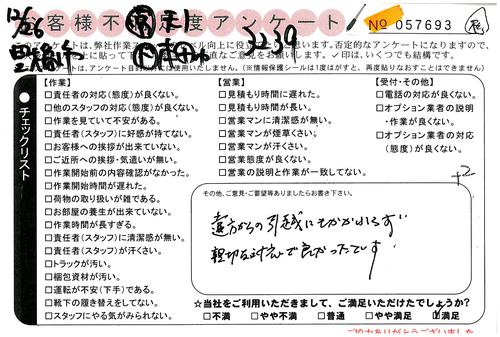 お客様不満足度アンケート
No 057693
12/26
3239
チェックリスト
【作業】
□責任者の対応(態度)が良くない。
□他のスタッフの対応(態度)が良くない。
□作業を見ていて不安がある。
□責任者(スタッフ)に好感が持てない。
□お客様への挨拶が出来ていない。
□ご近所への挨拶・気遣いが無い。
□作業開始前の内容確認がなかった。
□作業開始時間が遅れた。
□荷物の取り扱いが雑である。
□お部屋の養生が出来ていない。
□作業時間が長すぎる。
□責任者(スタッフ)に清潔感が無い。
□責任者(スタッフ)が汗くさい。
□トラックが汚い。
□梱包資材が汚い。
□運転が不安(下手)である。
□靴下の履き替えをしてない。
□スタッフにやる気がみられない。
【営業】
□見積もり時間に遅れた。
□見積もり時間が長い。
□営業マンに清潔感が無い。
□営業マンが煙草くさい。
□営業マンが汗くさい。
□営業態度が良くない。
□営業の説明と作業が一致してない。
【受付・その他】
□電話の対応が良くない。
□オプション業者の説明
・作業が良くない。
□オプション業者の対応
(態度)が良くない。
+2
その他、ご意見・ご要望等ありましたらお書き下さい。
遠方からの引越にもかかわらず
親切な対応で良かったです
☆当社をご利用いただきまして、ご満足いただけたでしょうか?
□不満 □やや不満 □普通 □やや満足 □満足
ご協力ありがとうございました